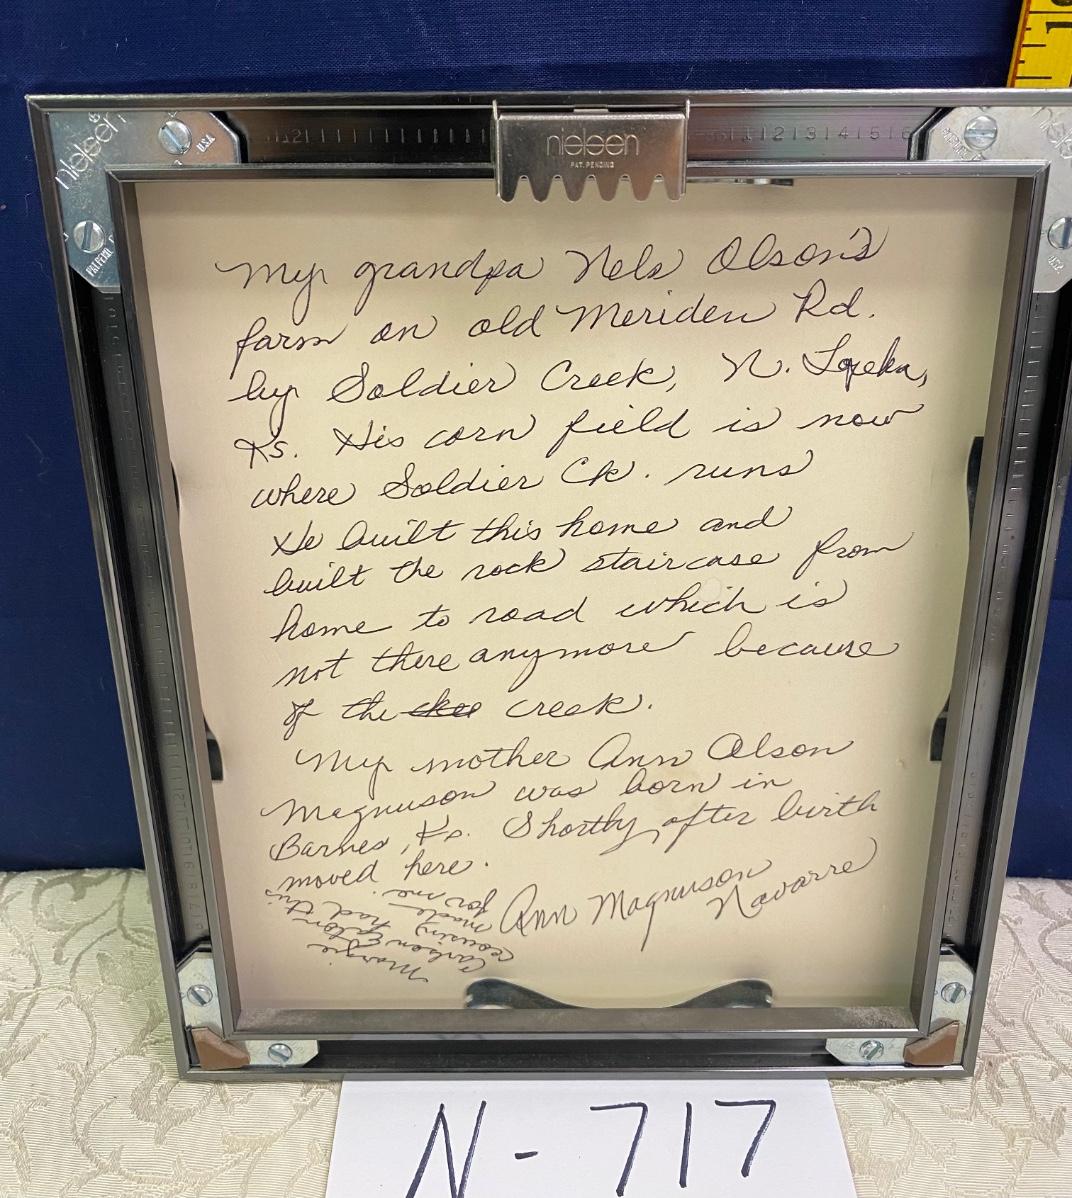 nielsen
PAT. PENDING
nielsen
USA
12 13 14 15 16
My grandpa Nels Olson's
farm on old Meriden Rd.
by Soldier Creek, N. Topeka,
Ks. His corn field is now
where Soldier Ck. runs
He built this home and
built the rock staircase from
home to road which is
not there anymore because
of the creek.
My mother Ann Olson
Magnuson was born in
Barnes, Ks. Shortly after birth
moved here.
Ann Magnuson
Navarre
Margie
Carlson Eaton
cousin had this
made
for me.
N-717